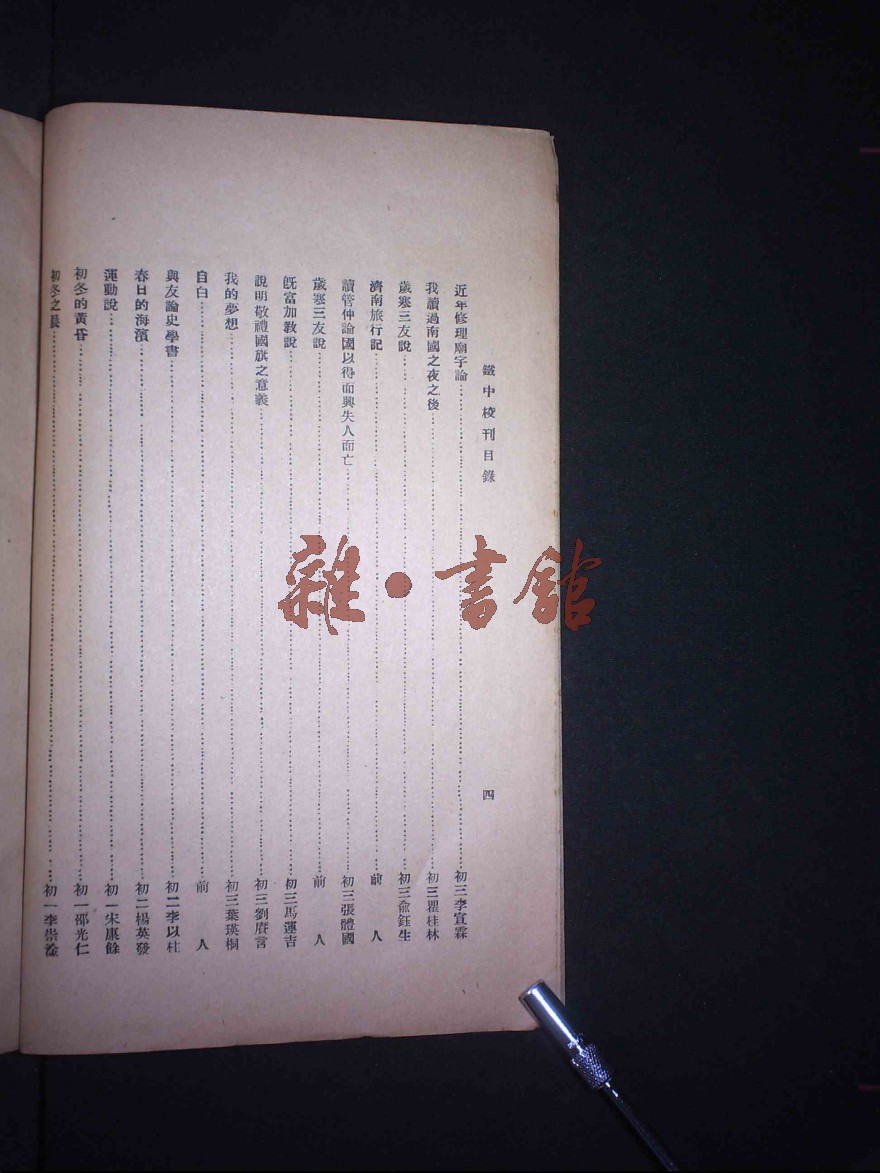 鐵中校刊目錄
四
近年修理廟宇論…初三李宣霖
我讀過南國之夜之後…初三瞿桂林
歲寒三友說…初三俞鈺生
濟南旅行記…前人
讀管仲論國以得而興失人而亡…初三張體國
歲寒三友說…前人
旣富加教說…初三馬運吉
說明敬禮國旗之意義…初三劉賡言
我的夢想…初三葉瑛桐
自白…前人
與友論史學書…初二李以柱
春日的海濱…初二楊英發
運動說…初一宋康餘
初冬的黃昏…初一邵光仁
初冬之晨…初一李崇淦
雜·書館